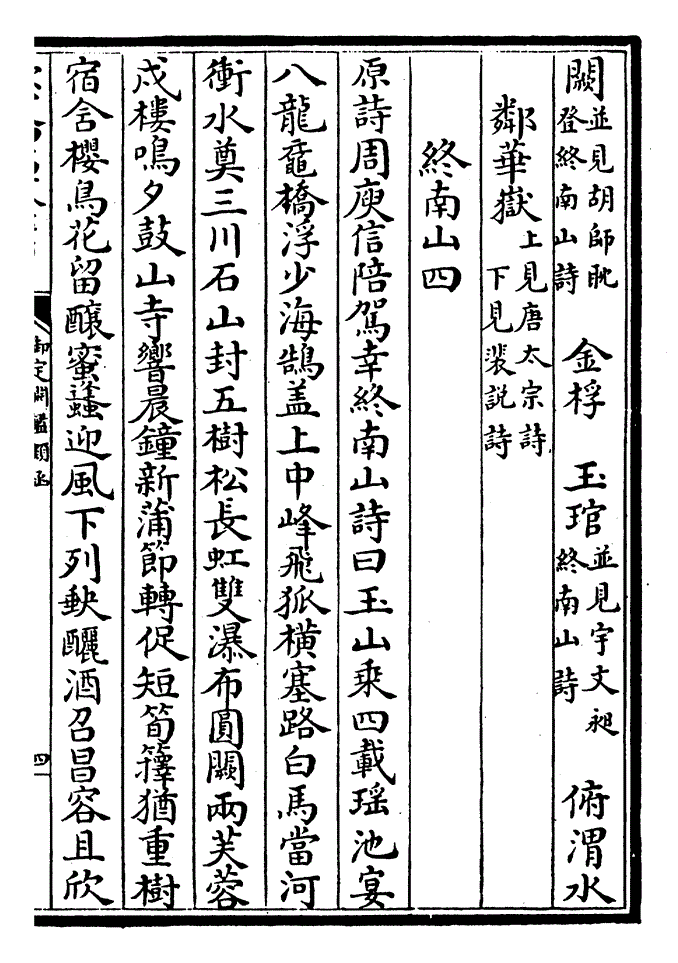 闕並見胡師耽登終南山詩 金桴 玉琯並見宇文昶終南山詩 俯渭水
鄰華嶽上見唐太宗詩下見裴説詩
終南山四
原詩周庾信陪駕幸終南山詩曰玉山乘四載瑶池宴
八龍黿橋浮少海鵠盖上中峰飛狐横塞路白馬當河
衝水奠三川石山封五樹松長虹雙瀑布圓闕兩芙蓉
戍樓鳴夕鼓山寺響晨鐘新蒲節轉促短筍籜猶重樹
宿含櫻鳥花留釀蜜蜂迎風下列缺灑酒召昌容且欣
御定淵鑑類函
四